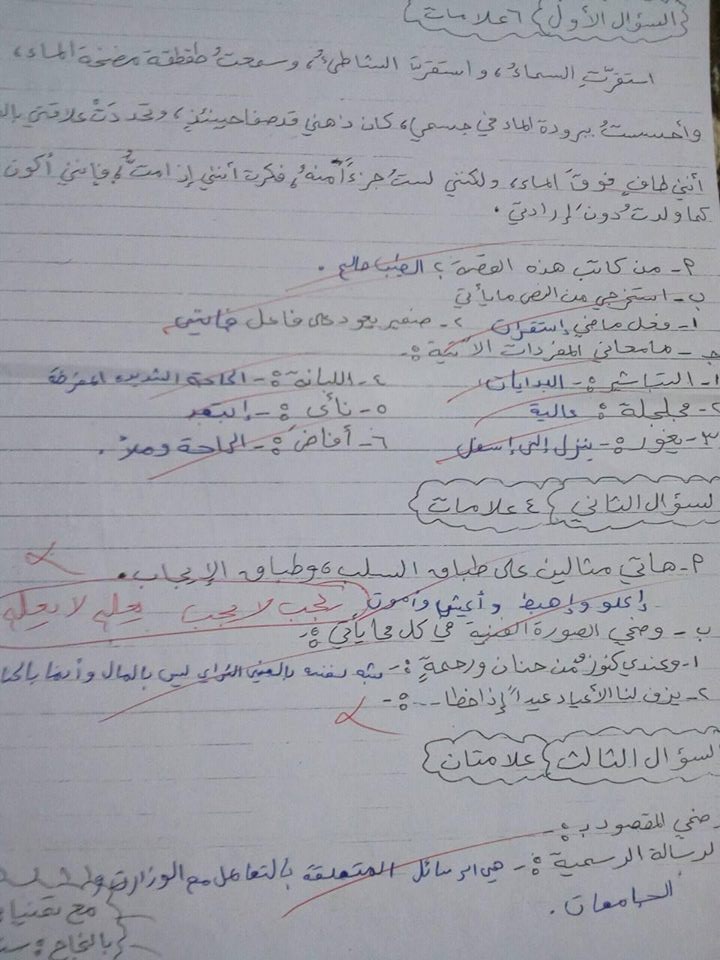 السؤال الأول ٦ علامات
استقرّتِ السماءُ، واستقرت الشاطئُ، وسمعتُ طقطقة مضخة الماء،
وأحسستُ ببرودة الماء في جسمي، كان ذهني قد صفا حينئذٍ، وتحددَتْ علاقتي
أنني طافٍ فوقَ الماء، ولكنني لستُ جزءاً منهُ، فكرت أنني إذا متُّ، فإنني أكون
كما ولدتُ دونَ إرادتي.
٢- من كاتب هذه القصة؟ الطيب صالح.
ب- استخرجي من النص ما يأتي
١- فعل ماضي إستقرت ٢- ضمير يعود على فاعل
جـ - ما معاني المفردات الآتية:-
١- التباشير:- البدايات. ٤- اللبانة:- الحاجة الشديده
٢- مجلجلة: عالية ٥- نأى:- إبتعد
٣- يغور:- ينزل إلى إسفل ٦- أفاض:- الحاجة وملأ.
السؤال الثاني ٤ علامات
٢- هاتي مثالين على طباق السلب، وطباق الإيجاب.
إعلو وإهبط وأعيش وأموت يحب لا يحب يعلم لا يعلم
ب- وضحي الصورة الفنية في كل مما يأتي:-
١- وعندي كنوزٌ من حنان ورحمةٍ:- شبه نفسه بالغني الثراي ليس بالمال وأنما
٢- يزف لنا الأعياد عيداً إذا خطا...:-
السؤال الثالث علامتان
وضحي المقصود بـ:-
الرسالة الرسمية:- هي الرسائل المتعلقة بالتعامل مع الوزارت
الجامعات.
مع
بالنجاح